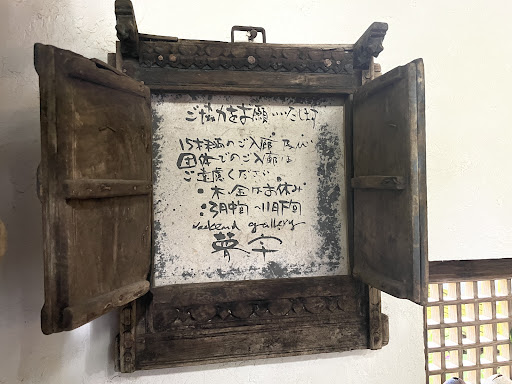 ご協力をお願いいたします
15才未満のご入廊 及び
団体でのご入廊は
ご遠慮ください
・木、金はお休み
：3月中旬〜11月下旬
weekend gallery
夢宇